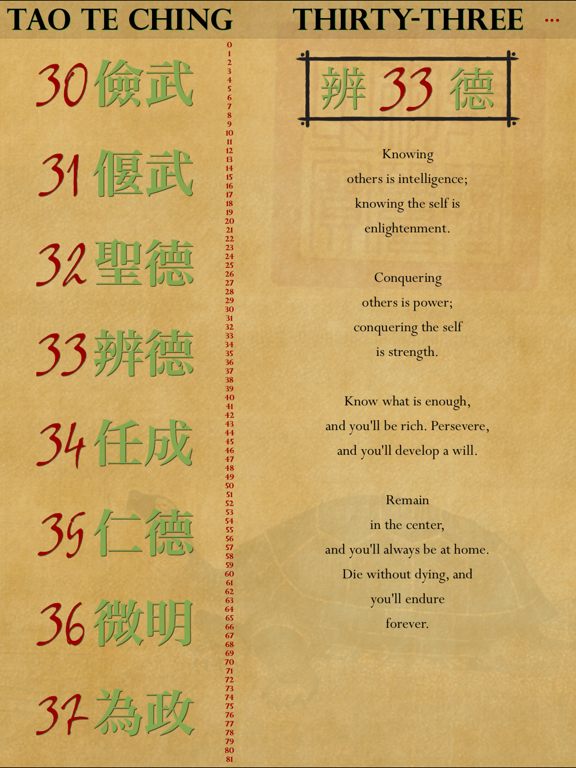 TAO TE CHING
THIRTY-THREE ...
30 儉武
31 偃武
32 聖德
33 辨德
34 任成
35 仁德
36 微明
37 為政
0
1
2
3
4
5
6
7
8
9
10
11
12
13
14
15
16
17
18
19
20
21
22
23
24
25
26
27
28
29
30
31
32
33
34
35
36
37
38
39
40
41
42
43
44
45
46
47
48
49
50
51
52
53
54
55
56
57
58
59
60
61
62
63
64
65
66
67
68
69
70
71
72
73
74
75
76
77
78
79
80
81
辨 33 德
Knowing
others is intelligence;
knowing the self is
enlightenment.
Conquering
others is power;
conquering the self
is strength.
Know what is enough,
and you'll be rich. Persevere,
and you'll develop a will.
Remain
in the center,
and you'll always be at home.
Die without dying, and
you'll endure
forever.